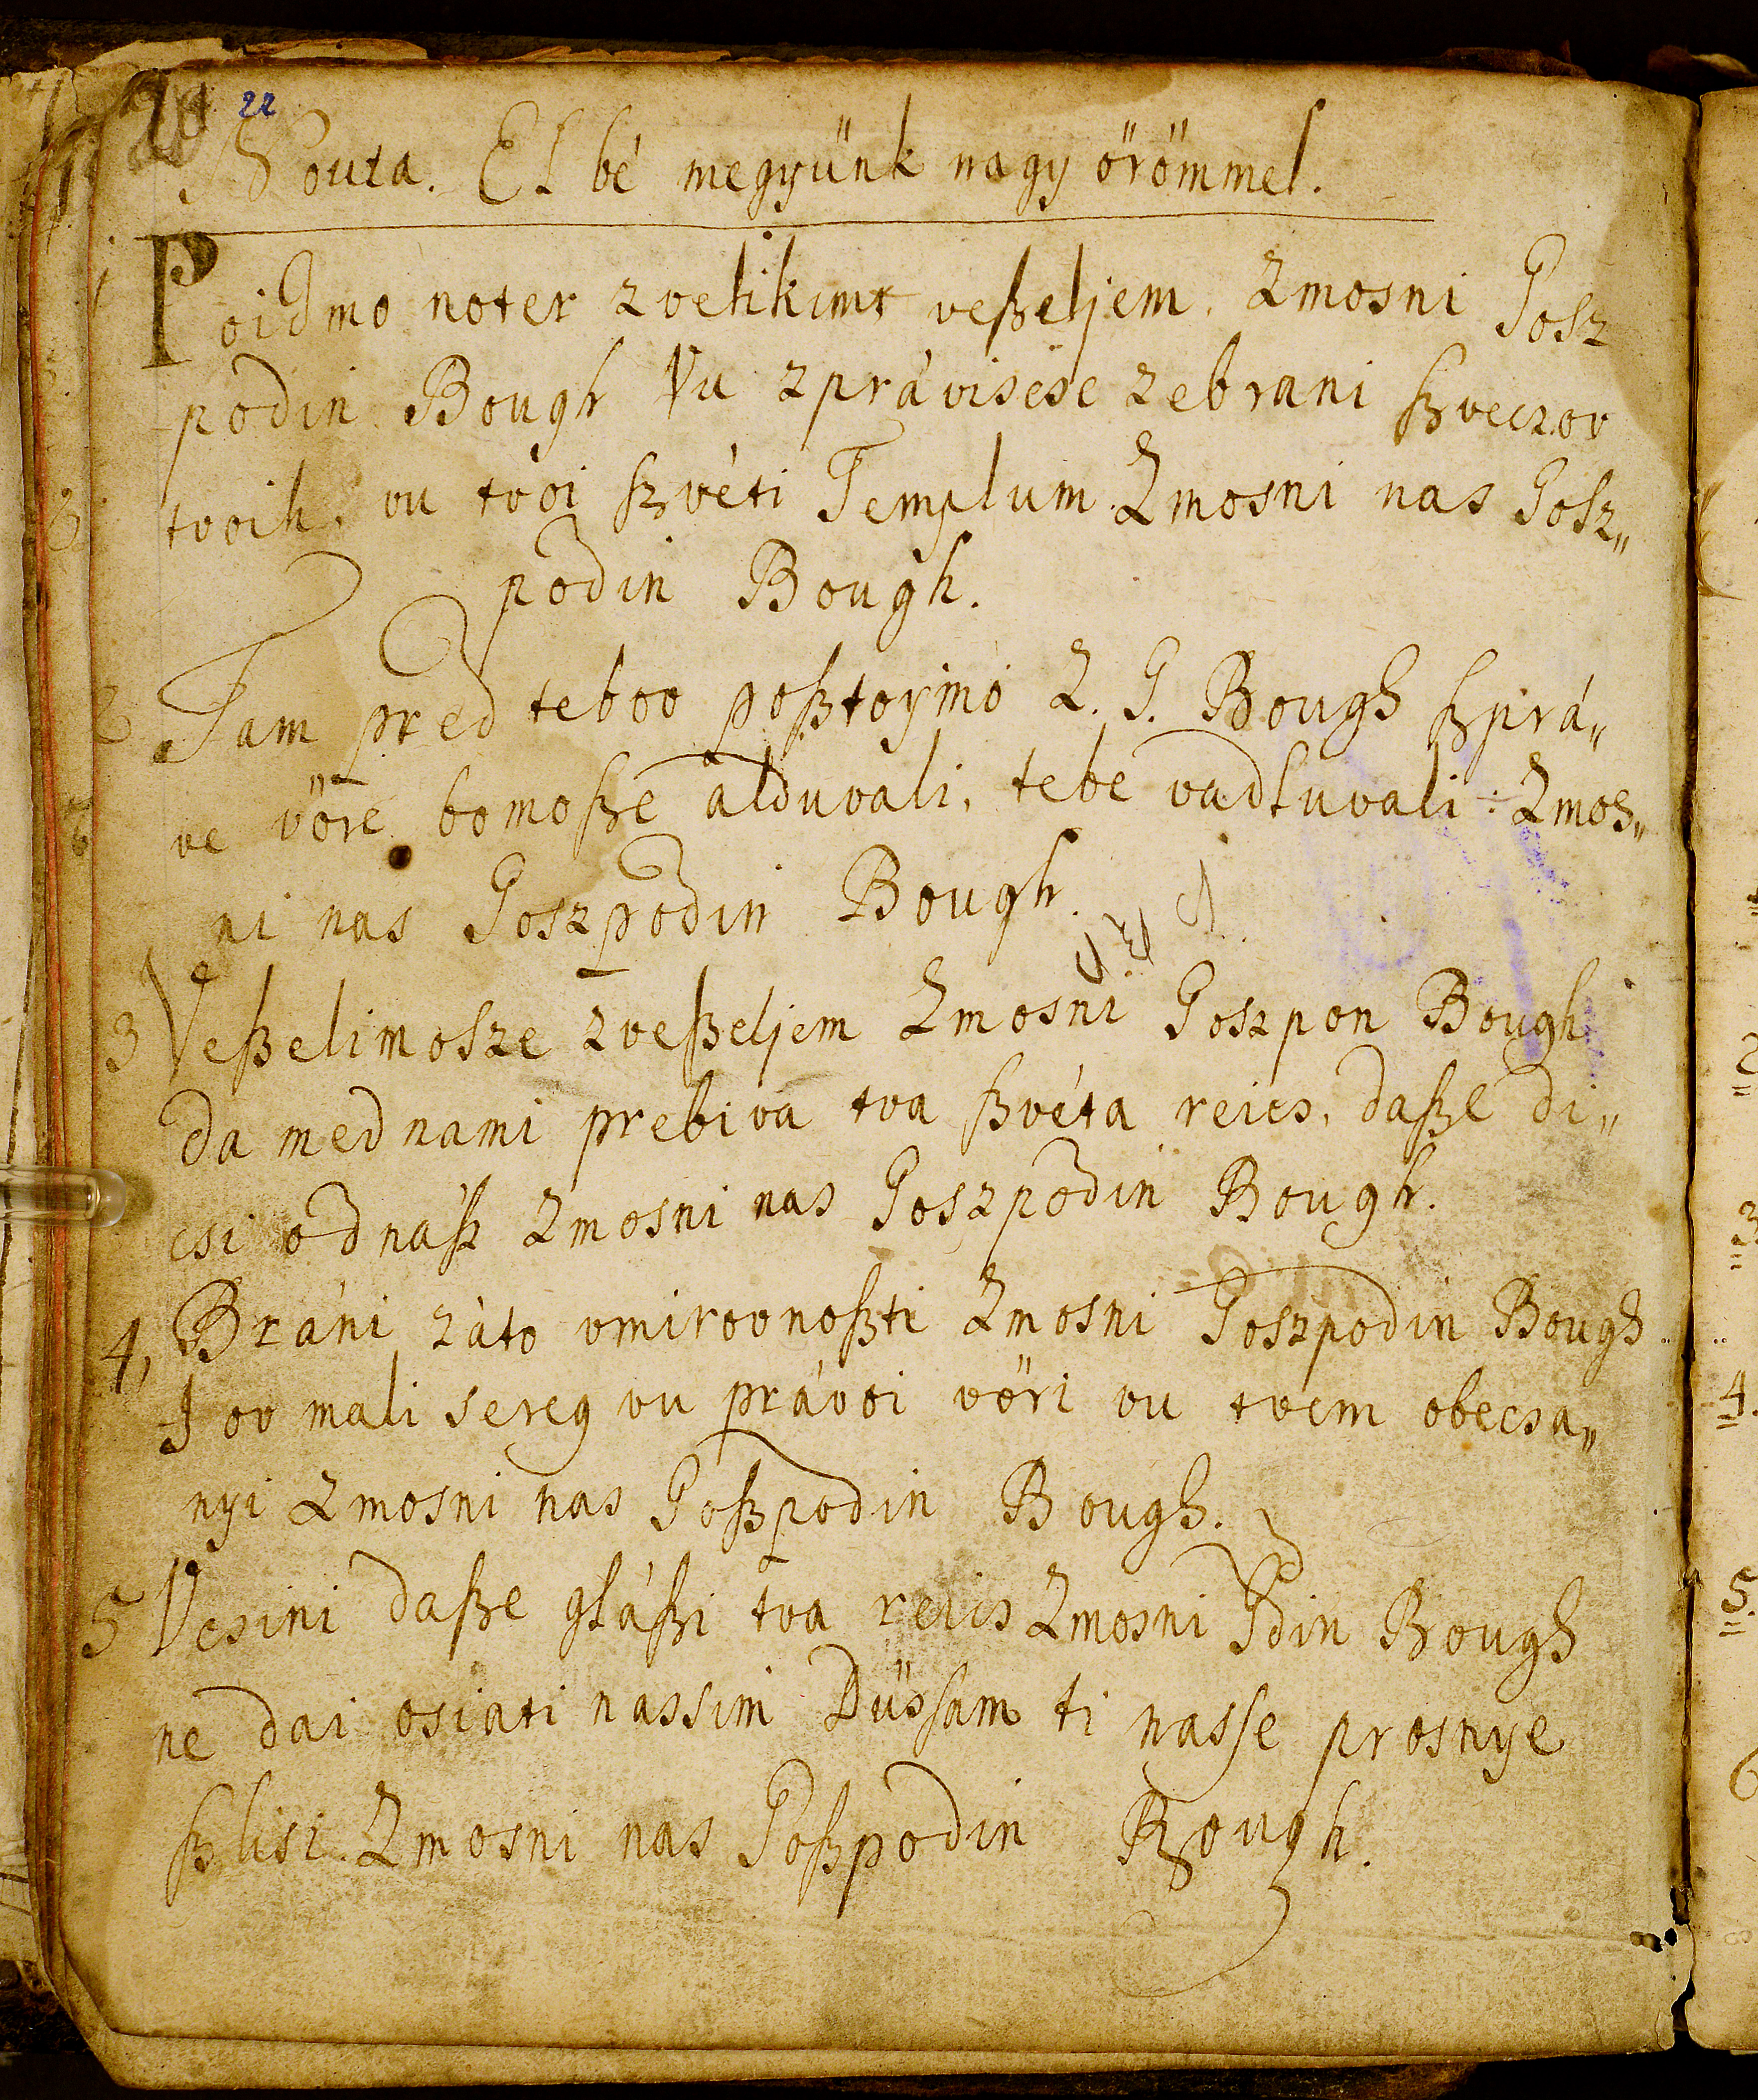 20 22
Nouta. El bé megyünk nagy örömmel.
1 Poidmo noter zvelikimr veßeljem. Zmosni Gosz
podin Bough Vu zprávisese zebrani ßveczov
tvoih. vu tvoi ßvéti Templum. Zmosni nas Gosz„
podin Bough.
2 Tam pred teboo poßtoymo Z. G. Bough ßprá„
ve vöre bomoßse alduvali, tebe vadluvali: Zmos„
ni nas Goszpodin Bough.
3 Veßelimosze zveßeljem Zmosni Goszpon Bough
da med nami prebiva tva ßvéta reics, daße di„
csi od náß Zmosni nas Goszpodin Bough.
4, Bráni záto vmirovnoßti Zmosni Goszpodin Bough
I ov mali sereg vu právoi vöri vu tvem obecsa„
nyi Zmosni nas Goßpodin Bough.
5 Vcsini daße gláßi tva reics Zmosni Gdin Bough
ne dai osiati nassim Düssam ti nasse prosnye
ßlisi. Zmosni nas Goßpodin Bough.
2
3
4.
5.
6